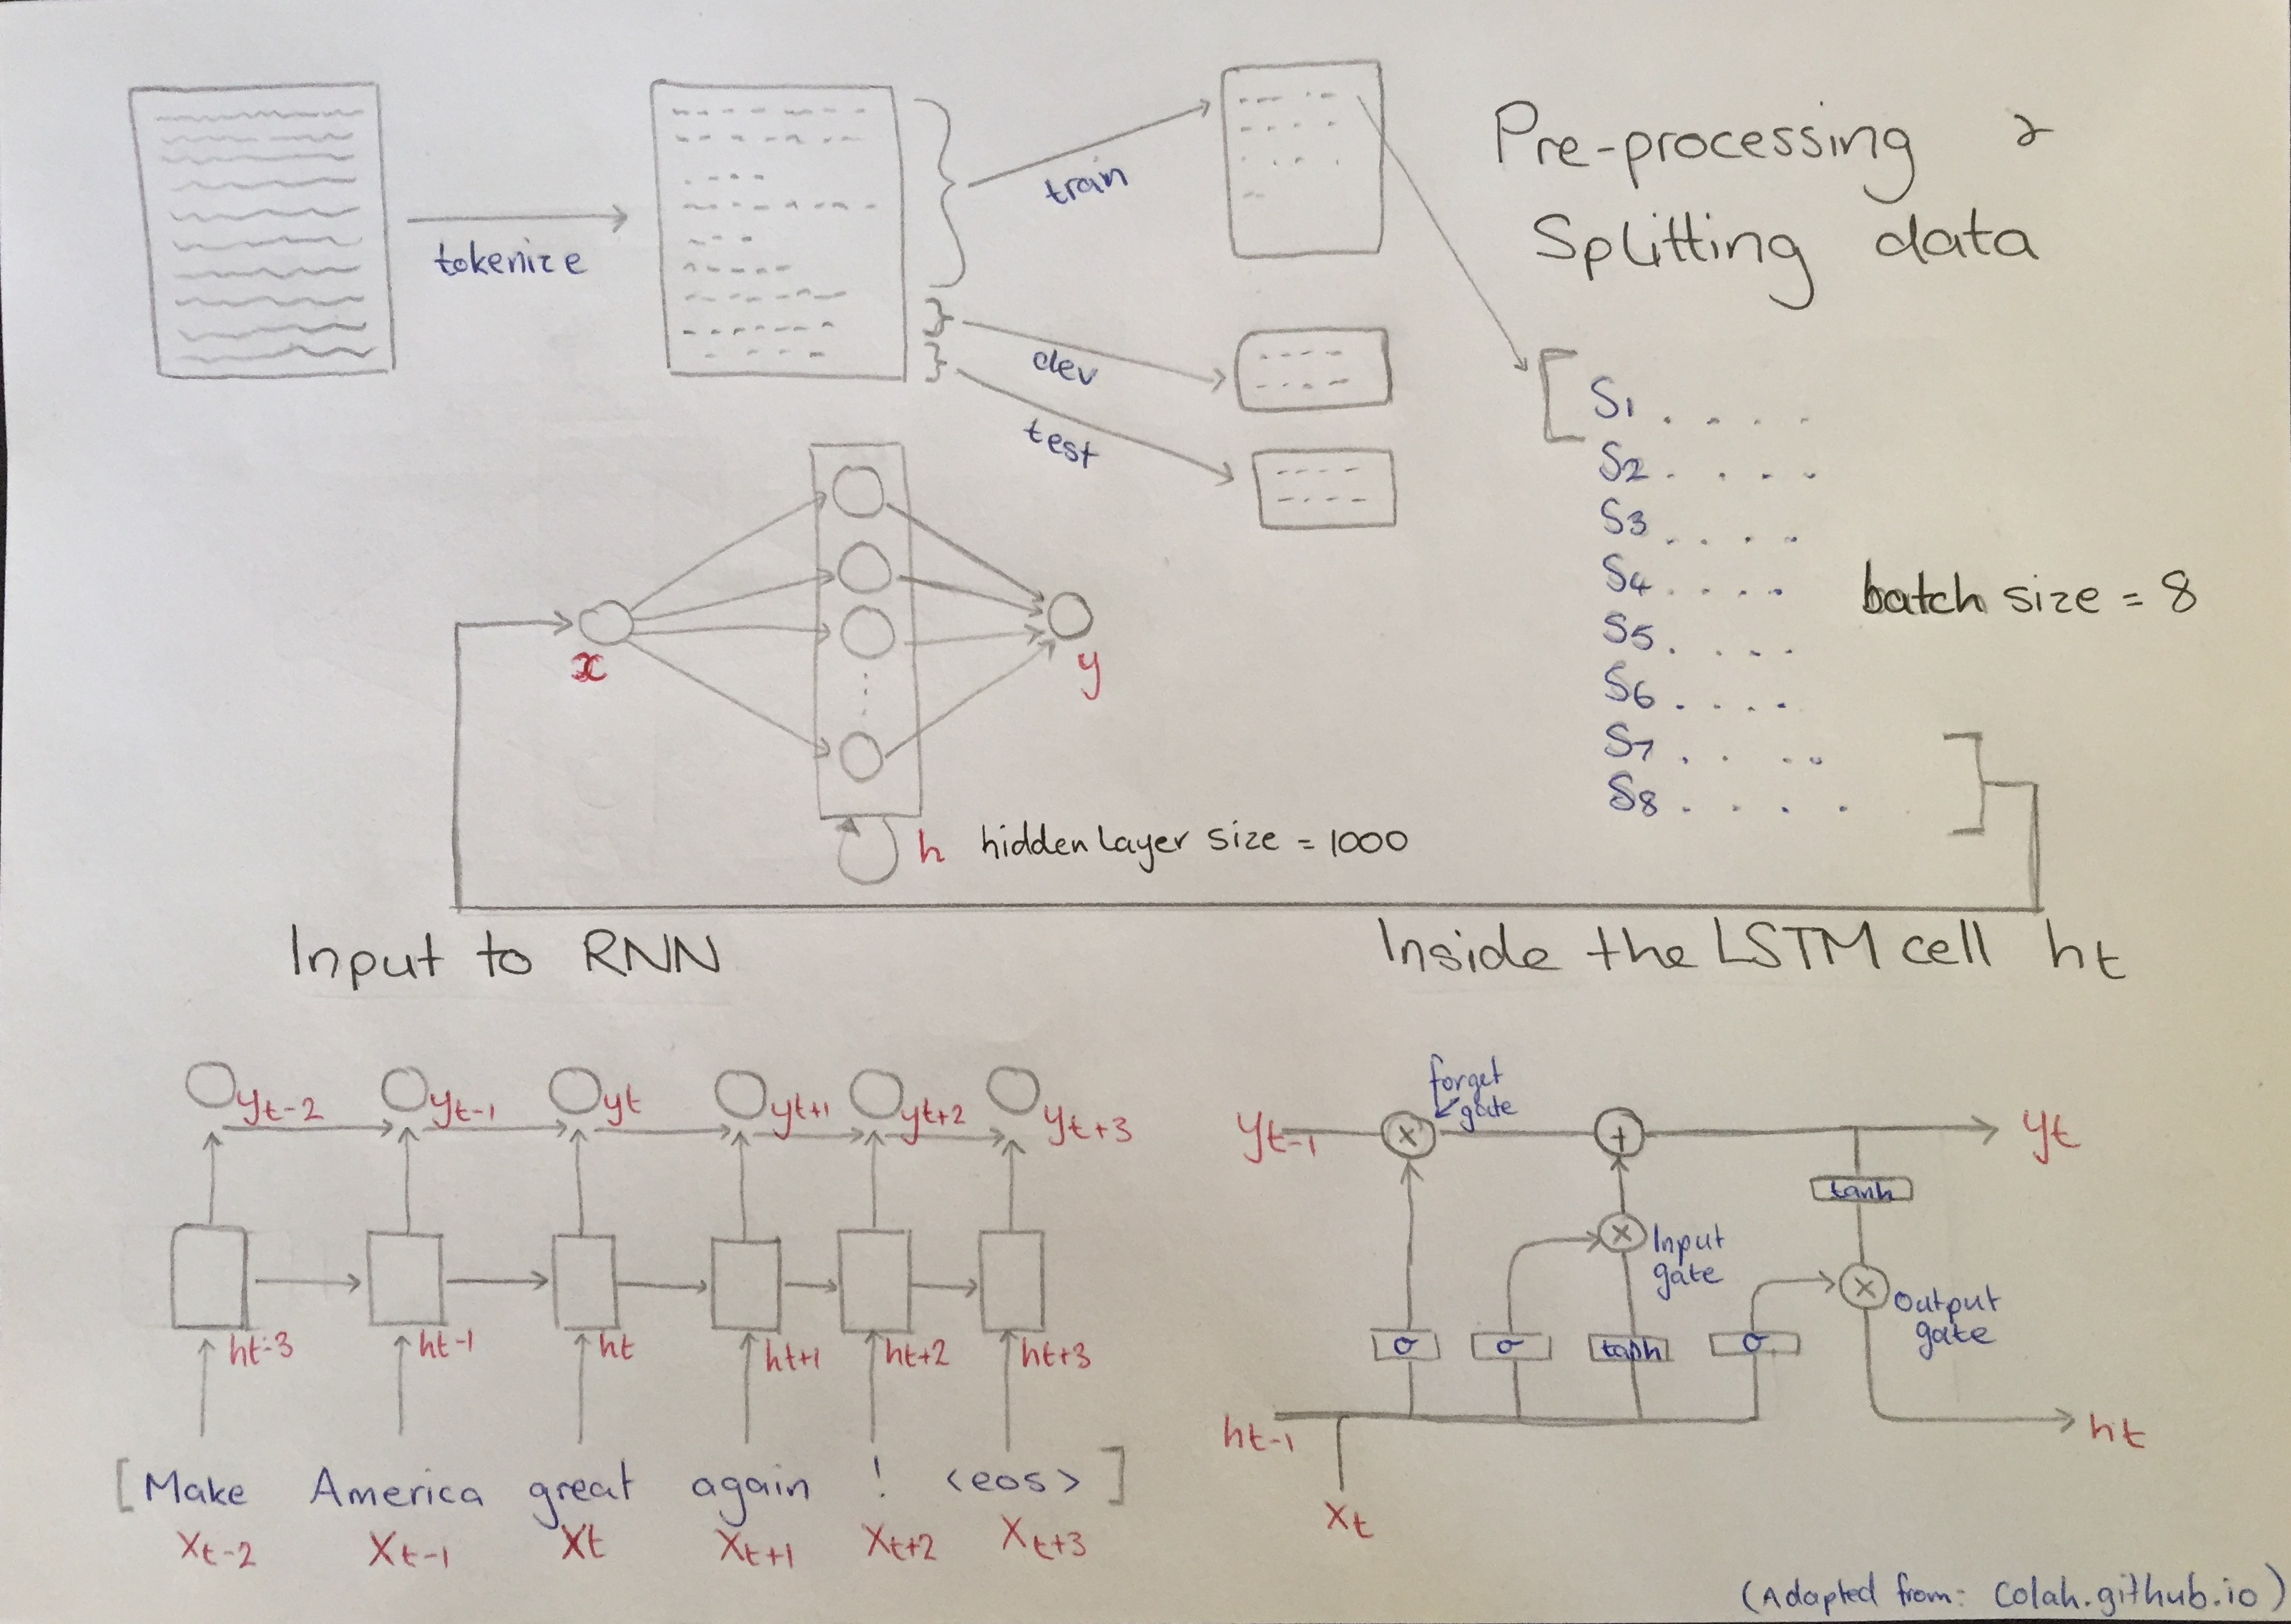 Pre-processing &
Splitting data
tokenize
train
dev
test
S1 . . . .
S2 . . . .
S3 . . . .
S4 . . . .
S5 . . . .
S6 . . . .
S7 . . . .
S8 . . . .
batch size = 8
x
y
h hidden layer size = 1000
Input to RNN
yt-2 yt-1 yt yt+1 yt+2 yt+3
ht-3 ht-1 ht ht+1 ht+2 ht+3
[Make America great again ! <eos>]
xt-2 xt-1 xt xt+1 xt+2 xt+3
Inside the LSTM cell ht
forget
gate
yt-1 × + yt
tanh
× Input
gate
× Output
gate
σ σ tanh σ
ht-1 ht
xt
(Adapted from: colah.github.io)